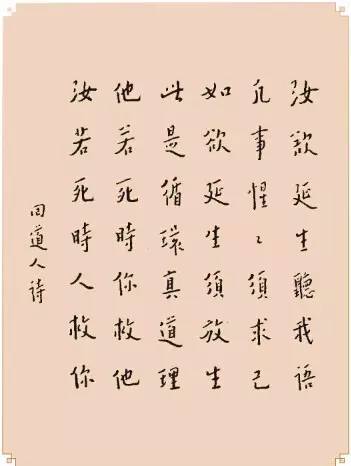 汝欲延生聽我語
凡事惺〻須求己
如欲延生須放生
此是循環真道理
他若死時你救他
汝若死時人救你
回道人诗